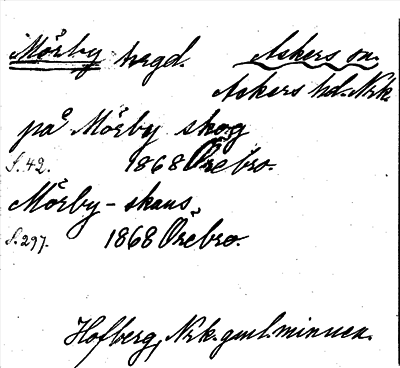 Mörby hrgd. Askers sn.
Askers hd. Nrk.
på Mörby skog
s. 42. 1868 Örebro.
Mörby-skans
s. 297. 1868 Örebro.
Hofberg, Nrk. gml. minnen.